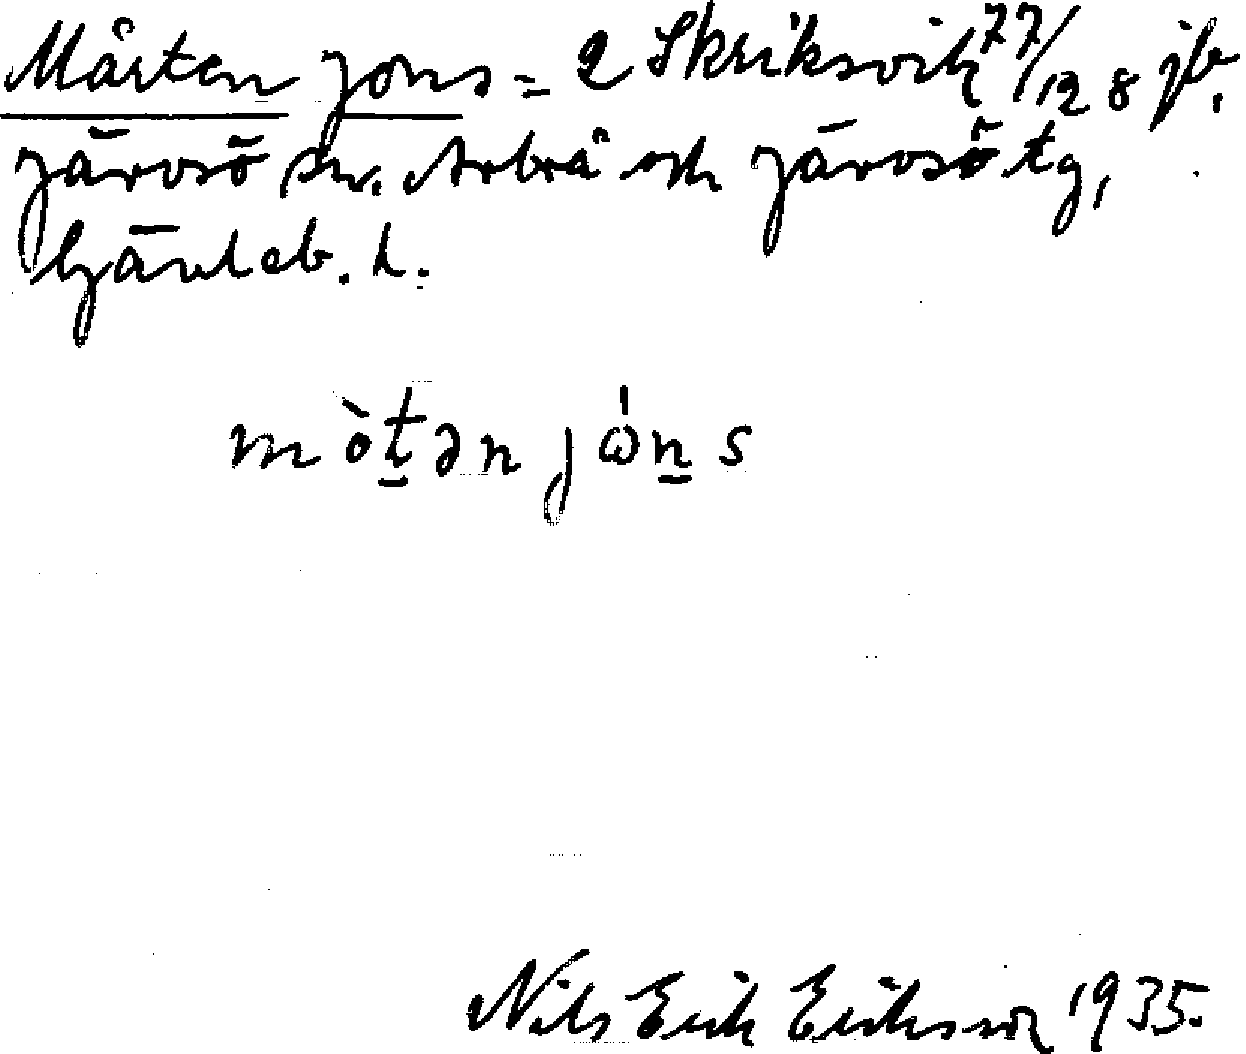 Mårten Jons = 2 Skriksvik 77/128 jb.
Järvsö sn. Arbrå och Järvsö tg,
Gävleb. l.
mò̀ṯən jώṉs
Nils Erik Eriksson 1935.